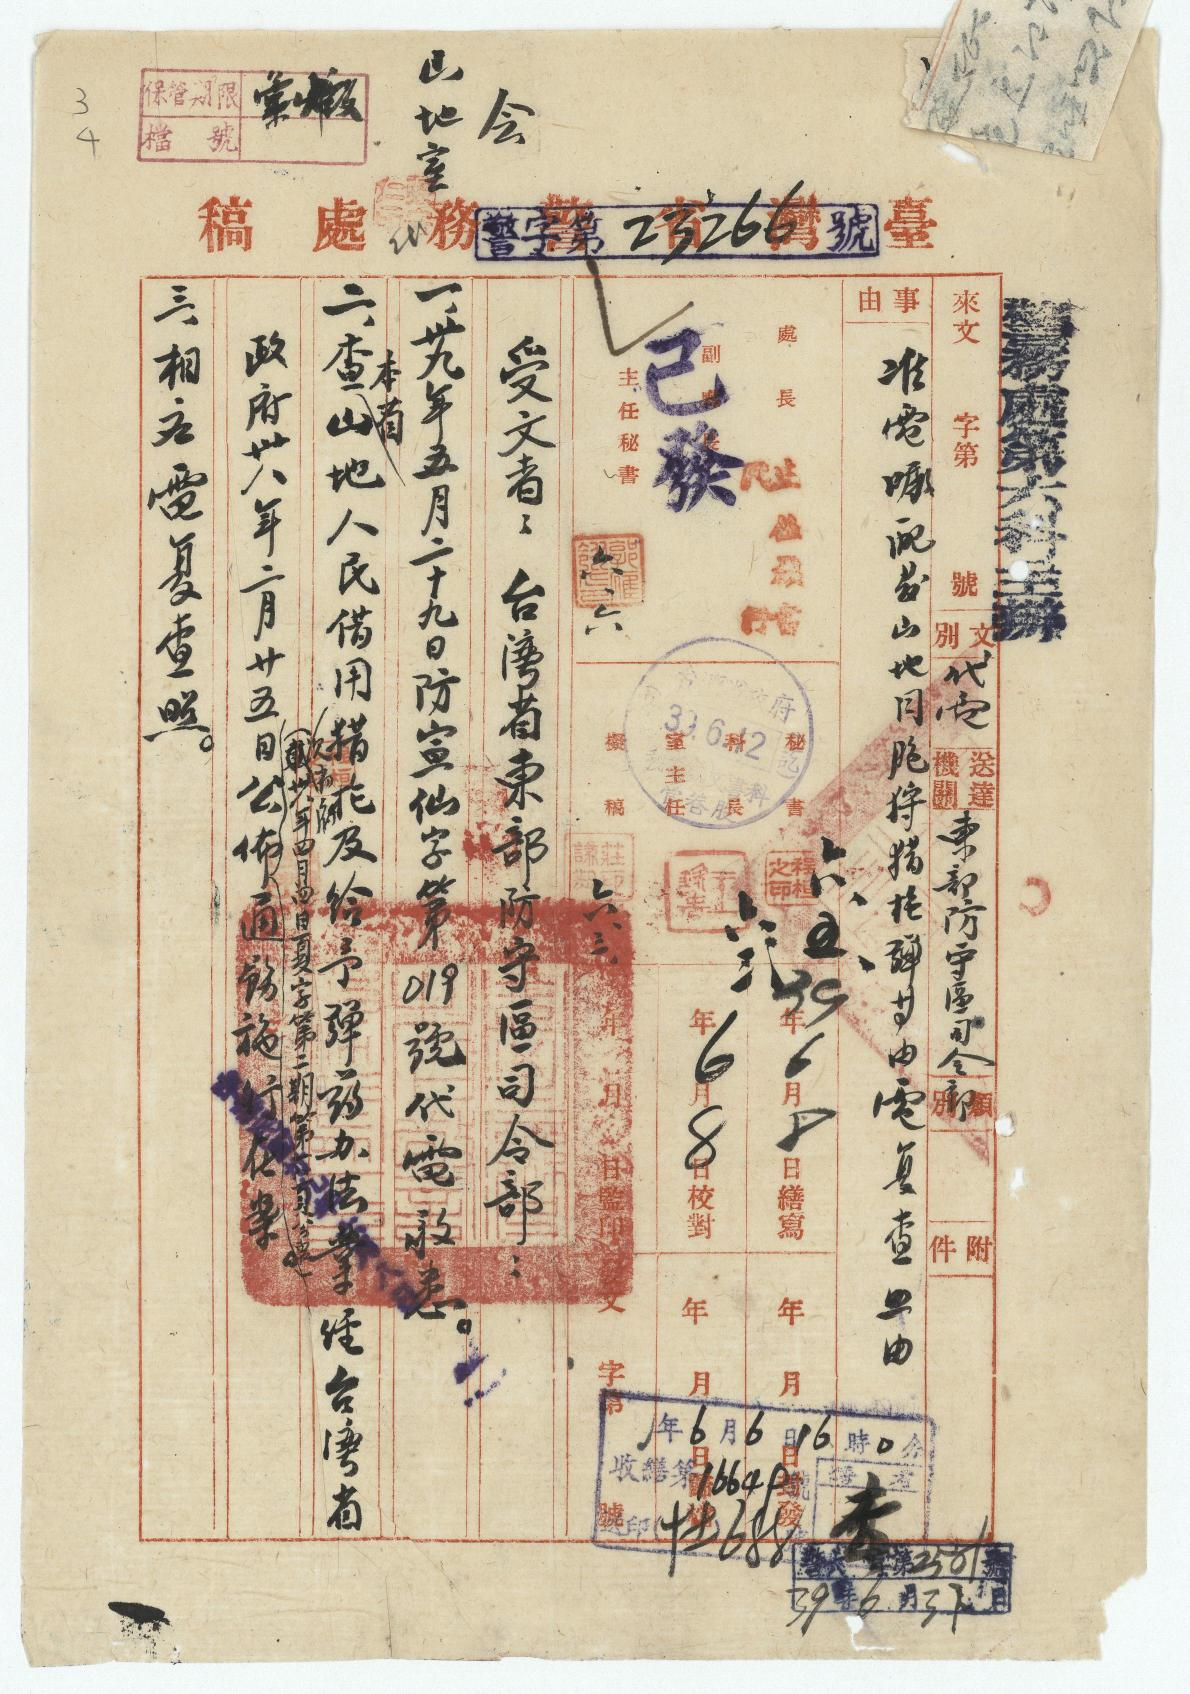 保管期限
檔號
34
会
山地室
臺灣省警務處稿
警字第23266號
警務處第六科主辦
來文 字第 號
文別 代電
送達機關 東部防守區司令部
類別
附件
事由
准電囑配發山地同胞狩獵槍彈等由電复查照由
處長
副處長
主任秘書
已發
六.六
秘書
科長
室主任
擬稿
39.6.12
六.五
六.三
39年6月8日繕寫
年6月8日校對
年月日監印
年月日封發
發文 字第 號
受文者：台灣省東部防守區司令部：
一、卅九年五月二十九日防宣仙字第019號代電敬悉。
二、查本省山地人民借用獵槍及給予彈葯办法業經台灣省
政府卅八年二月廿五日公佈通飭施行在案
三、相应電复查照。
年6月6日16時0分
收繕第16649號
李
39年6月3日